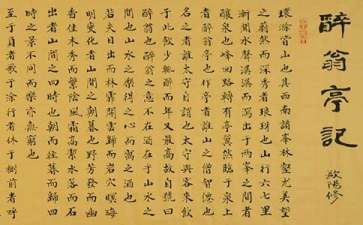 醉翁亭記
歐陽修
環滁皆山也其西南諸峯林壑尤美望
之蔚然而深秀者琅琊也山行六七里
漸聞水聲潺潺而瀉出于兩峯之間者
釀泉也峰回路轉有亭翼然臨于泉上
者醉翁亭也作亭者誰山之僧智僊也
名之者誰太守自謂也太守與客來飲
于此飲少輒醉而年又最高故自號曰
醉翁也醉翁之意不在酒在乎山水之
間也山水之樂得之心而寓之酒也
若夫日出而林霏開雲歸而岩穴暝晦
明變化者山間之朝暮也野芳發而幽
香佳木秀而繁陰風霜高潔水落而石
出者山間之四時也朝而往暮而歸四
時之景不同而樂亦無窮也
至于負者歌于塗行者休于樹前者呼